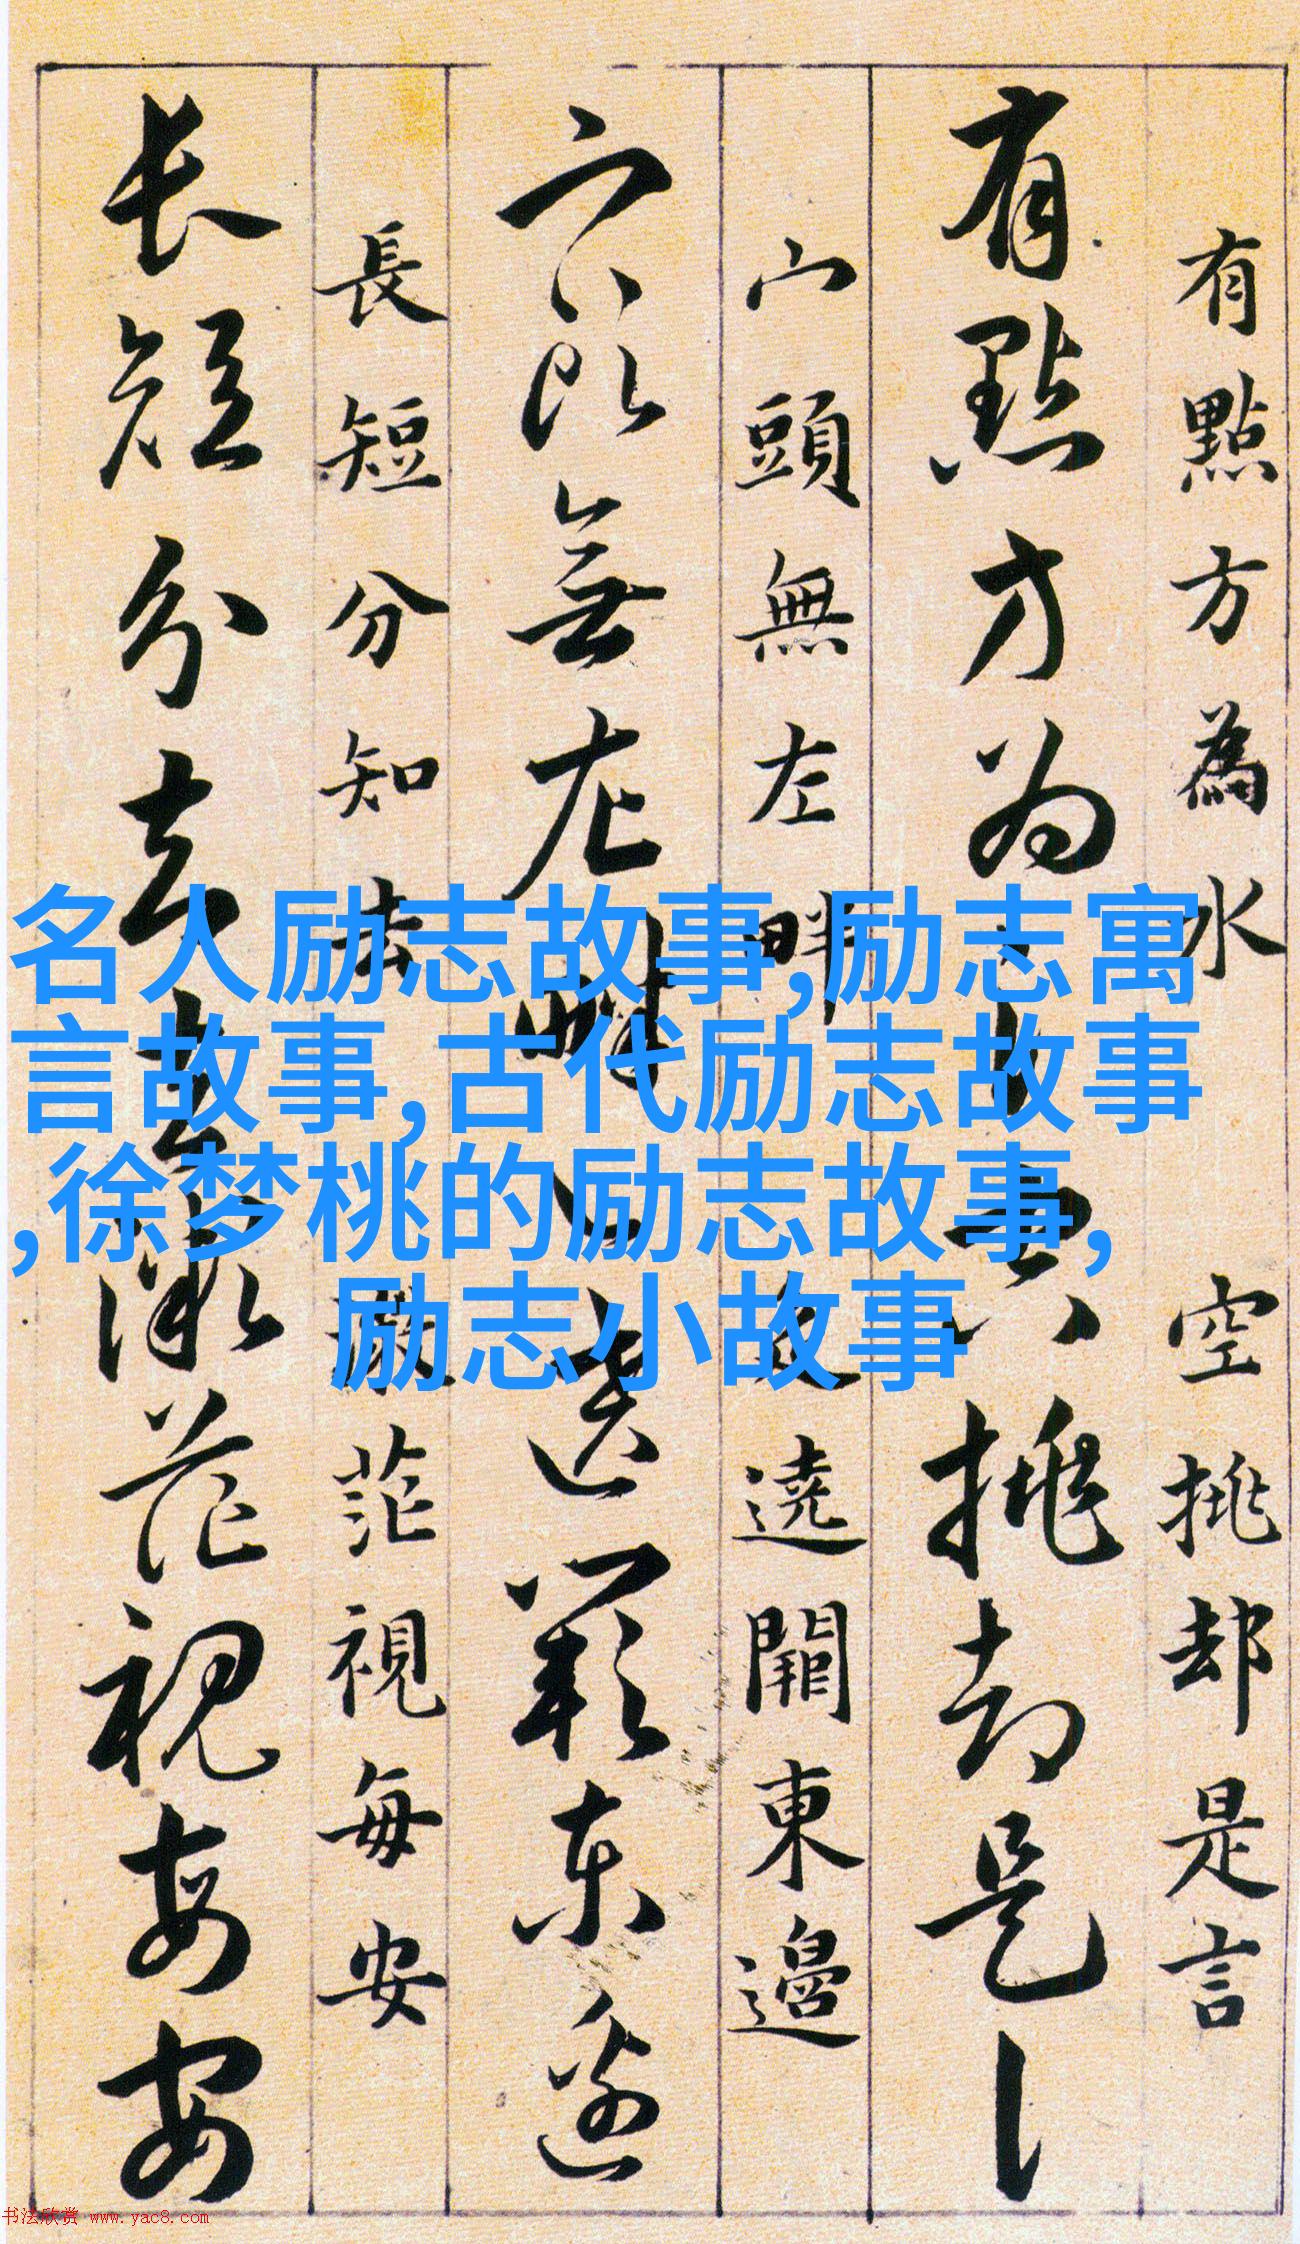 有點方為水 空挑却是言
有點方为 空挑却是言
宀頭無左畔 辵遶闕東邊
宀頭無左畔 辵遶闕东邊
長短分知去 微茫視每安
长短分去去微茫視每安
名人励志故事,励志寓
言故事,古代励志故事
,徐梦桃的励志故事,
励志小故事
书法欣赏 www.yac8.com